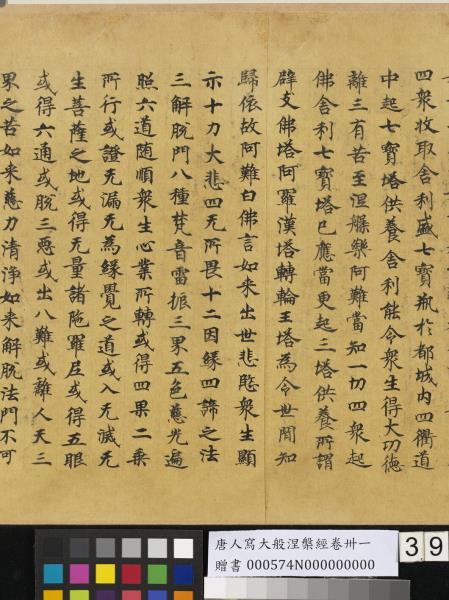 四衆收取舍利盛七寶瓶扵都城内四衢道
中起七寶塔供養舍利能令衆生得大功德
離三有苦至涅槃樂阿難當知一切四衆起
佛舍利七寶塔已應當更起三塔供養所謂
辟支佛塔阿羅漢塔轉輪王塔為令世間知
歸依故阿難白佛言如来出世悲愍衆生顯
示十力大悲四无所畏十二因緣四諦之法
三解脱門八種梵音雷振三界五色慈光遍
照六道随順衆生心業所轉或得四果二乗
所行或證无漏无為緣覺之道或入无滅无
生菩薩之地或得无量諸陁羅尼或得五眼
或得六通或脱三惡或出八難或離人天三
界之苦如来慈力清淨如来解脱法門不可
唐人寫大般涅槃經卷卅一
贈書 000574N000000000
39